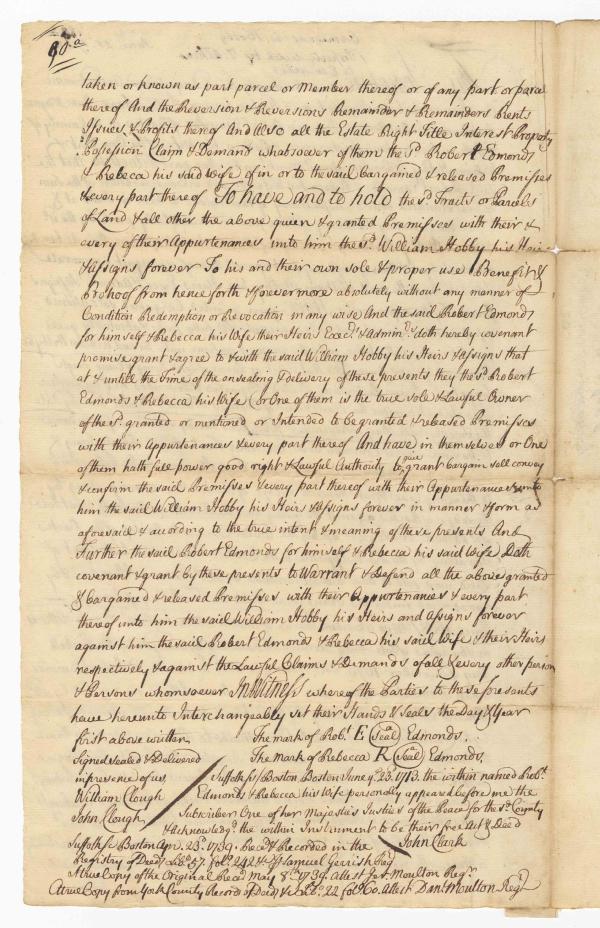 90.a
taken or known as part parcel or member thereof or of any part or parcel
thereof And the Reversion & Reversions Remainder & Remainders Rents
Issues & Profits thereof And Also all the Estate Right Title Interest Property
Possession Claim & Demand whatsoever of them the sd. Robert Edmonds
& Rebecca his said Wife of in or to the said bargained & released Premisses
& every part thereof To have and to hold the sd. Traits or Parcels
of Land & all other the above given & granted Premisses with their &
every of their Appurtenances unto him the sd. William Hobby his Heirs
& Assigns forever To his and their own sole & proper use Benefit &
Behoof from hence forth & forevermore absolutely without any manner of
Condition Redemption or Revocation in any wise And the said Robert Edmonds
for himself & Rebecca his Wife their Heirs Execrs. & Adminrs. doth hereby covenant
promise grant & agree to & with the said William Hobby his Heirs & Assigns that
at & untill the Time of the ensealing & delivery of these presents they the sd. Robert
Edmonds & Rebecca his Wife or One of them is the true sole & Lawful Owner
of the sd. granted or mentioned or Intended to be granted & released Premisses
with their Appurtenances & every part thereof And have in themselves or One
of them hath full power good right & Lawful Authority to give grant bargain sell convey
& confirm the said Premisses & every part thereof with their Appurtenances unto
him the said William Hobby his Heirs & Assigns forever in manner & form as
aforesaid & according to the true intent & meaning of these presents And
Further the said Robert Edmonds for himself & Rebecca his said Wife Doth
covenant & grant by these presents to Warrant & Defend all the above granted
& bargained & released Premisses with their Appurtenances & every part
thereof unto him the said William Hobby his Heirs and Assigns forever
against him the said Robert Edmonds & Rebecca his said Wife & their Heirs
respectively & against the Lawful Claims & Demands of all & every other person
& Persons whomsoever In Witness whereof the Parties to these presents
have hereunto Interchangeably set their Hands & Seals the Day & Year
first above written The mark of Robt. E (Seal) Edmonds.
Signed sealed & Delivered The mark of Rebecca R (Seal) Edmonds.
in presence of us Suffolk ss/ Boston June 23. 1713. the within named Robt.
William Clough Edmonds & Rebecca his Wife personally appeared before me the
John Clough Subscriber One of her Majesties Justices of the Peace for the sd. County
& Acknowledgd. the within Instrument to be their free Act & Deed
John Clark
Suffolk ss Boston Apr. 23d. 1739. Recd. & Recorded in the
Registry of Deeds Lib. 57. folo. 242 &c. Samuel Gerrish Reg
A true Copy of the Original Recd. May 8th. 1739. Attest Jer. Moulton Regr.
A true Copy from York County Records of Deeds &c Lib. 22 folo. 60. Attest Danl. Moulton Regr.